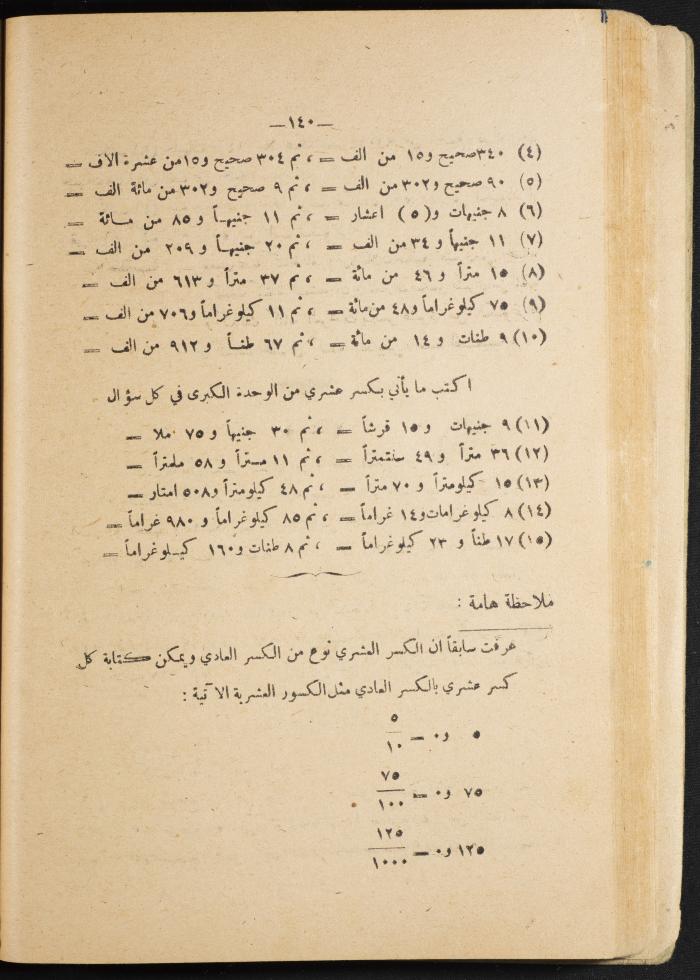 —١٤٠—
(٤) ٣٤٠صحيح و١٥ من الف = ، ثم ٣٠٤ صحيح و١٥من عشرة الاف =
(٥) ٩٠ صحيح و٣٠٢ من الف = ، ثم ٩ صحيح و٣٠٢ من مائة الف =
(٦) ٨ جنيهات و(٥) اعشار = ، ثم ١١ جنيهاً و ٨٥ من مائة =
(٧) ١١ جنيهاً و ٣٤ من الف = ، ثم ٢٠ جنيهاً و ٢٠٩ من الف =
(٨) ١٥ متراً و ٤٦ من مائة = ، ثم ٣٧ متراً و ٦١٣ من الف =
(٩) ٧٥ كيلوغراماً و٤٨ من مائة = ، ثم ١١ كيلوغراماً و٧٠٦ من الف =
(١٠) ٩ طنات و ١٤ من مائة = ، ثم ٦٧ طناً و ٩١٢ من الف =
اكتب ما يأتي بكسر عشري من الوحدة الكبرى في كل سؤال
(١١) ٩ جنيهات و ١٥ قرشاً = ، ثم ٣٠ جنيهاً و ٧٥ ملا =
(١٢) ٣٦ متراً و ٤٩ سنتمتراً = ، ثم ١١ متراً و ٥٨ ملمتراً =
(١٣) ١٥ كيلومتراً و ٧٠ متراً = ، ثم ٤٨ كيلومتراً و٥٠٨ امتار =
(١٤) ٨ كيلوغرامات و١٤ غراماً = ، ثم ٨٥ كيلوغراماً و ٩٨٠ غراماً =
(١٥) ١٧ طناً و ٢٣ كيلوغراماً = ، ثم ٨ طنات و ١٦٠ كيلوغراماً =
ملاحظة هامة :
عرفت سابقاً ان الكسر العشري نوع من الكسر العادي ويمكن كتابة كل
كسر عشري بالكسر العادي مثل الكسور العشرية الآتية :
٥ و٠ = ٥/١٠
٧٥ و٠ = ٧٥/١٠٠
١٢٥ و٠ = ١٢٥/١٠٠٠